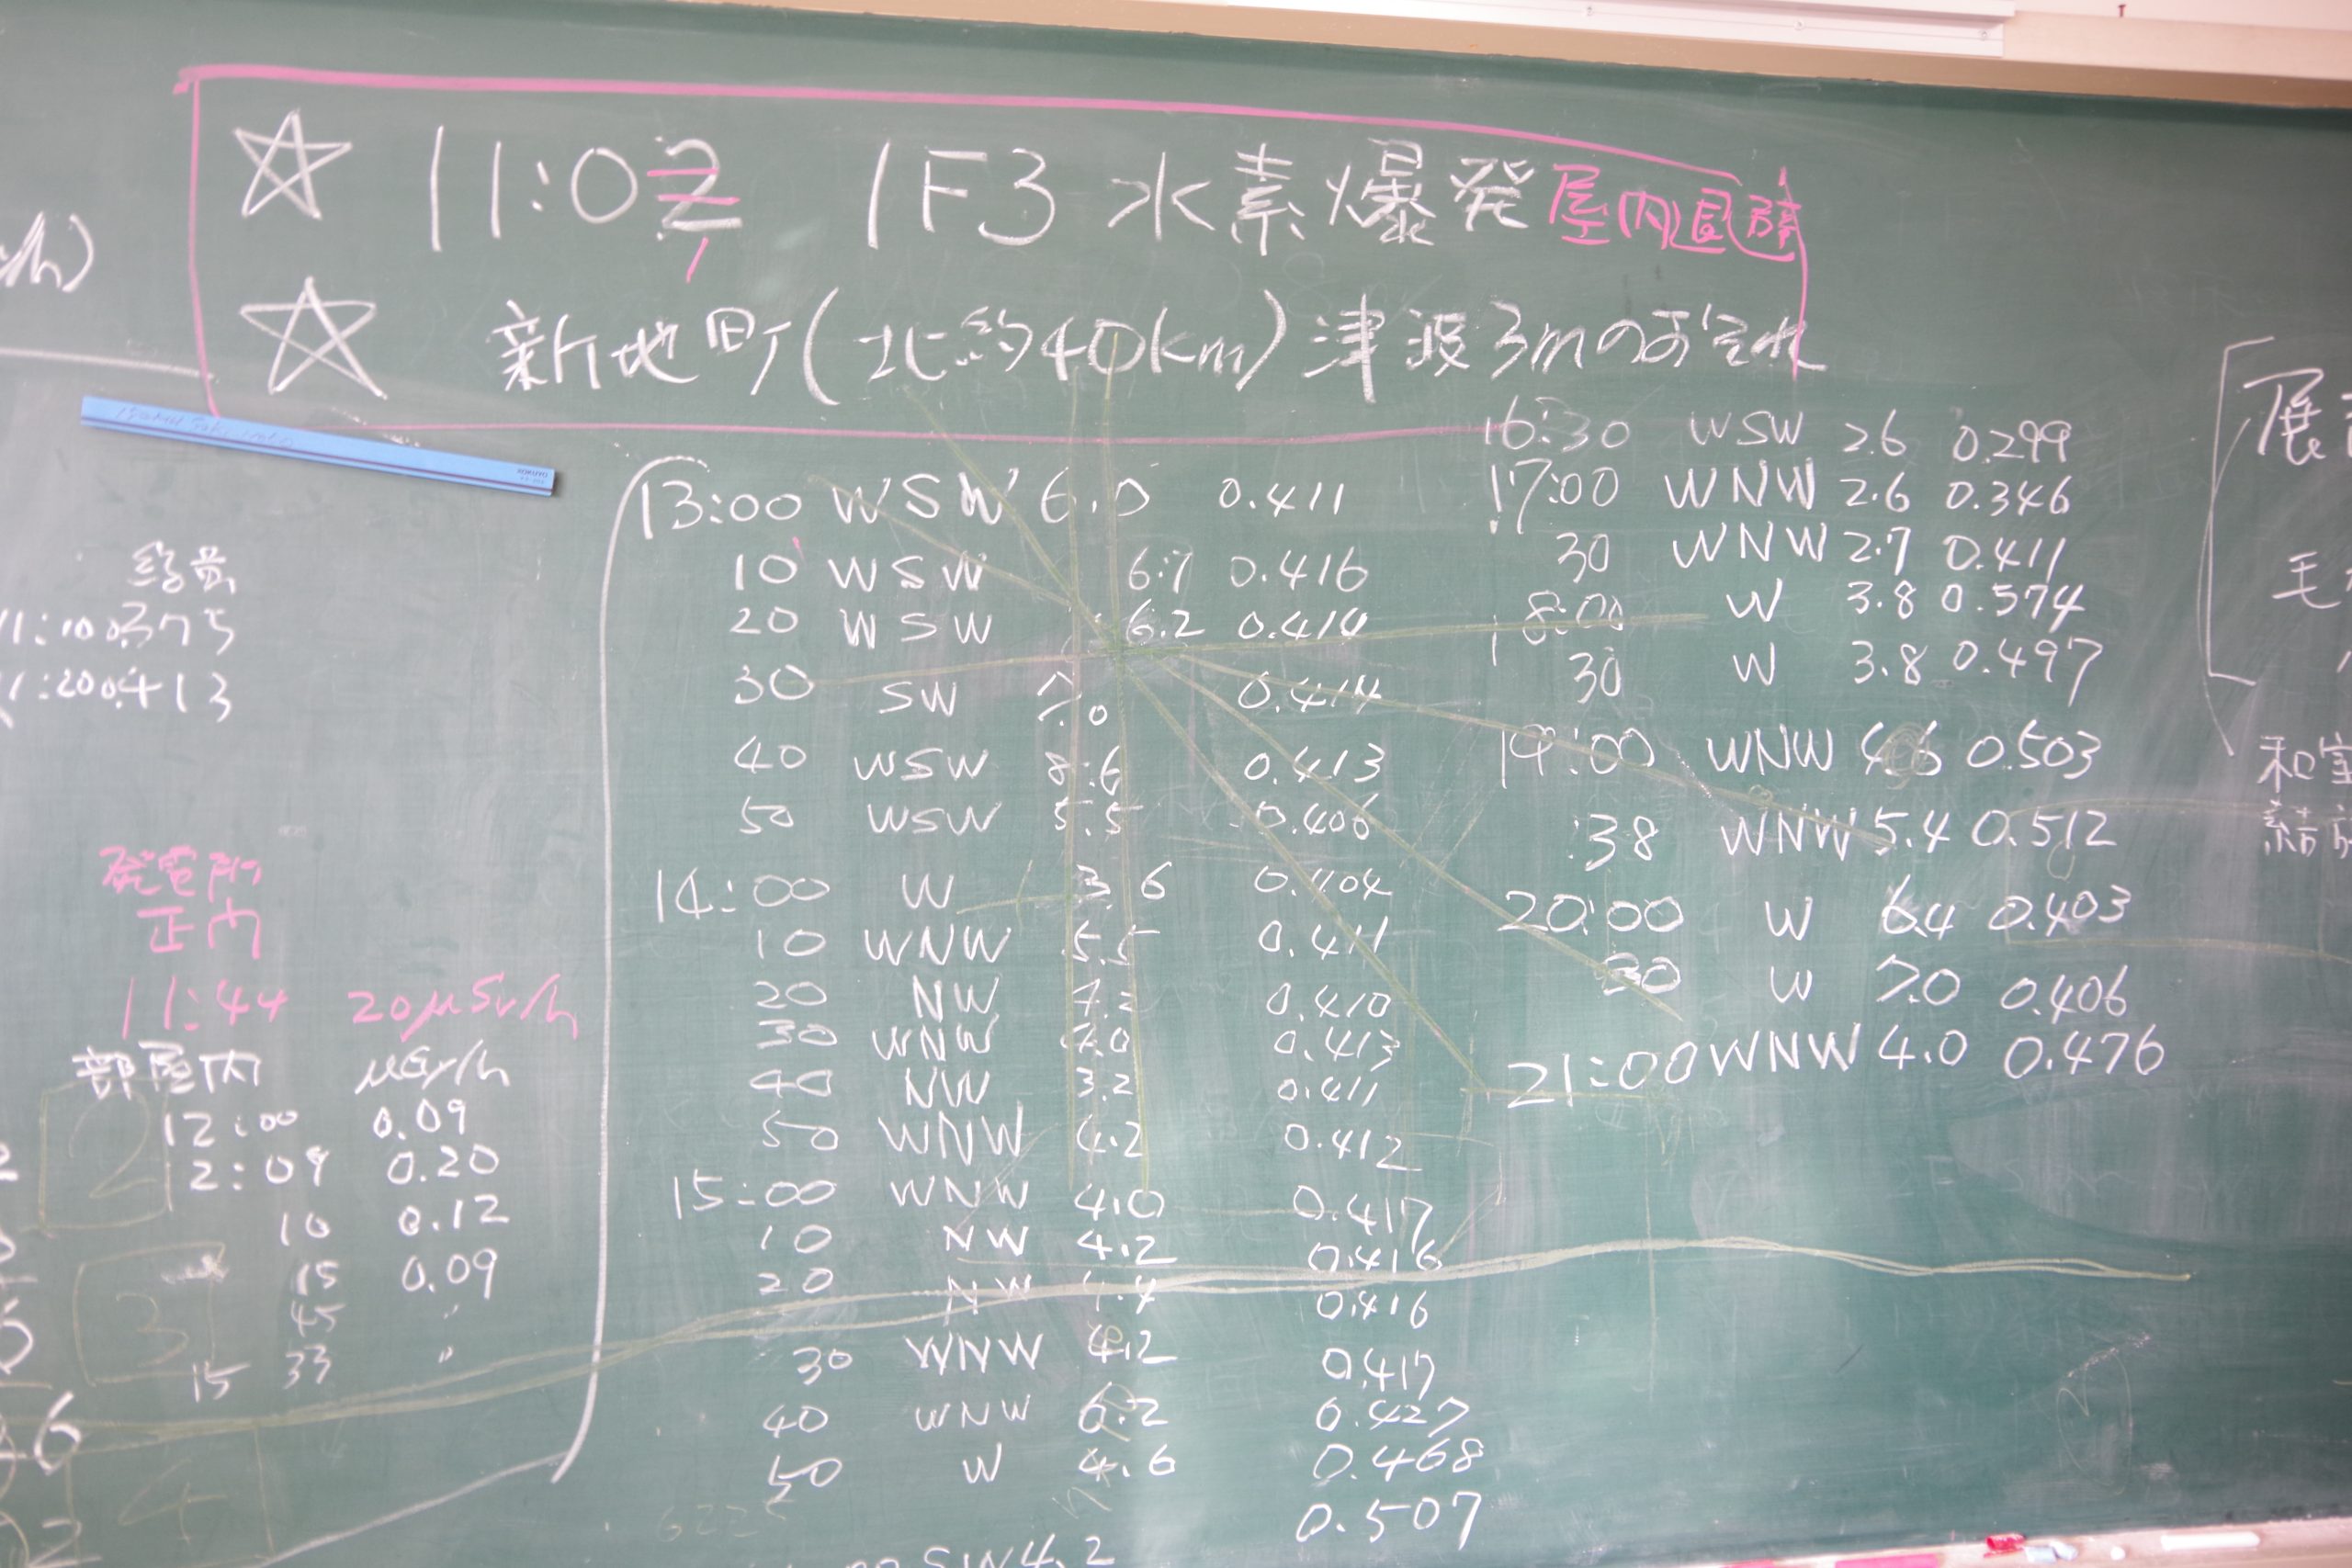 ☆ 11:02 1 1F3 水素爆発 屋内退避
☆ 新地町(北約40km)津波3mのおそれ
KOKUYO
11:20 0.413
発電所
正門
11:44 20μSv/h
部屋内 μGy/h
12:00 0.09
2:09 0.20
10 0.12
15 0.09
45 〃
15 33 〃
13:00 WSW 6.0 0.411
10 WSW 6.7 0.416
20 WSW 6.2 0.414
30 SW 7.0 0.414
40 WSW 8.6 0.413
50 WSW 5.5 0.406
14:00 W 3.6 0.404
10 WNW 5.5 0.411
20 NW 0.410
30 WNW 4.0 0.413
40 NW 3.2 0.411
50 WNW 4.2 0.412
15:00 WNW 4.0 0.417
10 NW 4.2 0.416
20 NW 0.416
30 WNW 4.2 0.417
40 WNW 6.2 0.427
50 W 4.6 0.468
0.507
SW 4.2
16:30 WSW 2.6 0.299
17:00 WNW 2.6 0.346
30 WNW 2.7 0.411
18:00 W 3.8 0.574
30 W 3.8 0.497
19:00 WNW 4.6 0.503
:38 WNW 5.4 0.512
20:00 W 6.4 0.403
30 W 7.0 0.406
21:00 WNW 4.0 0.476
展
毛
和室